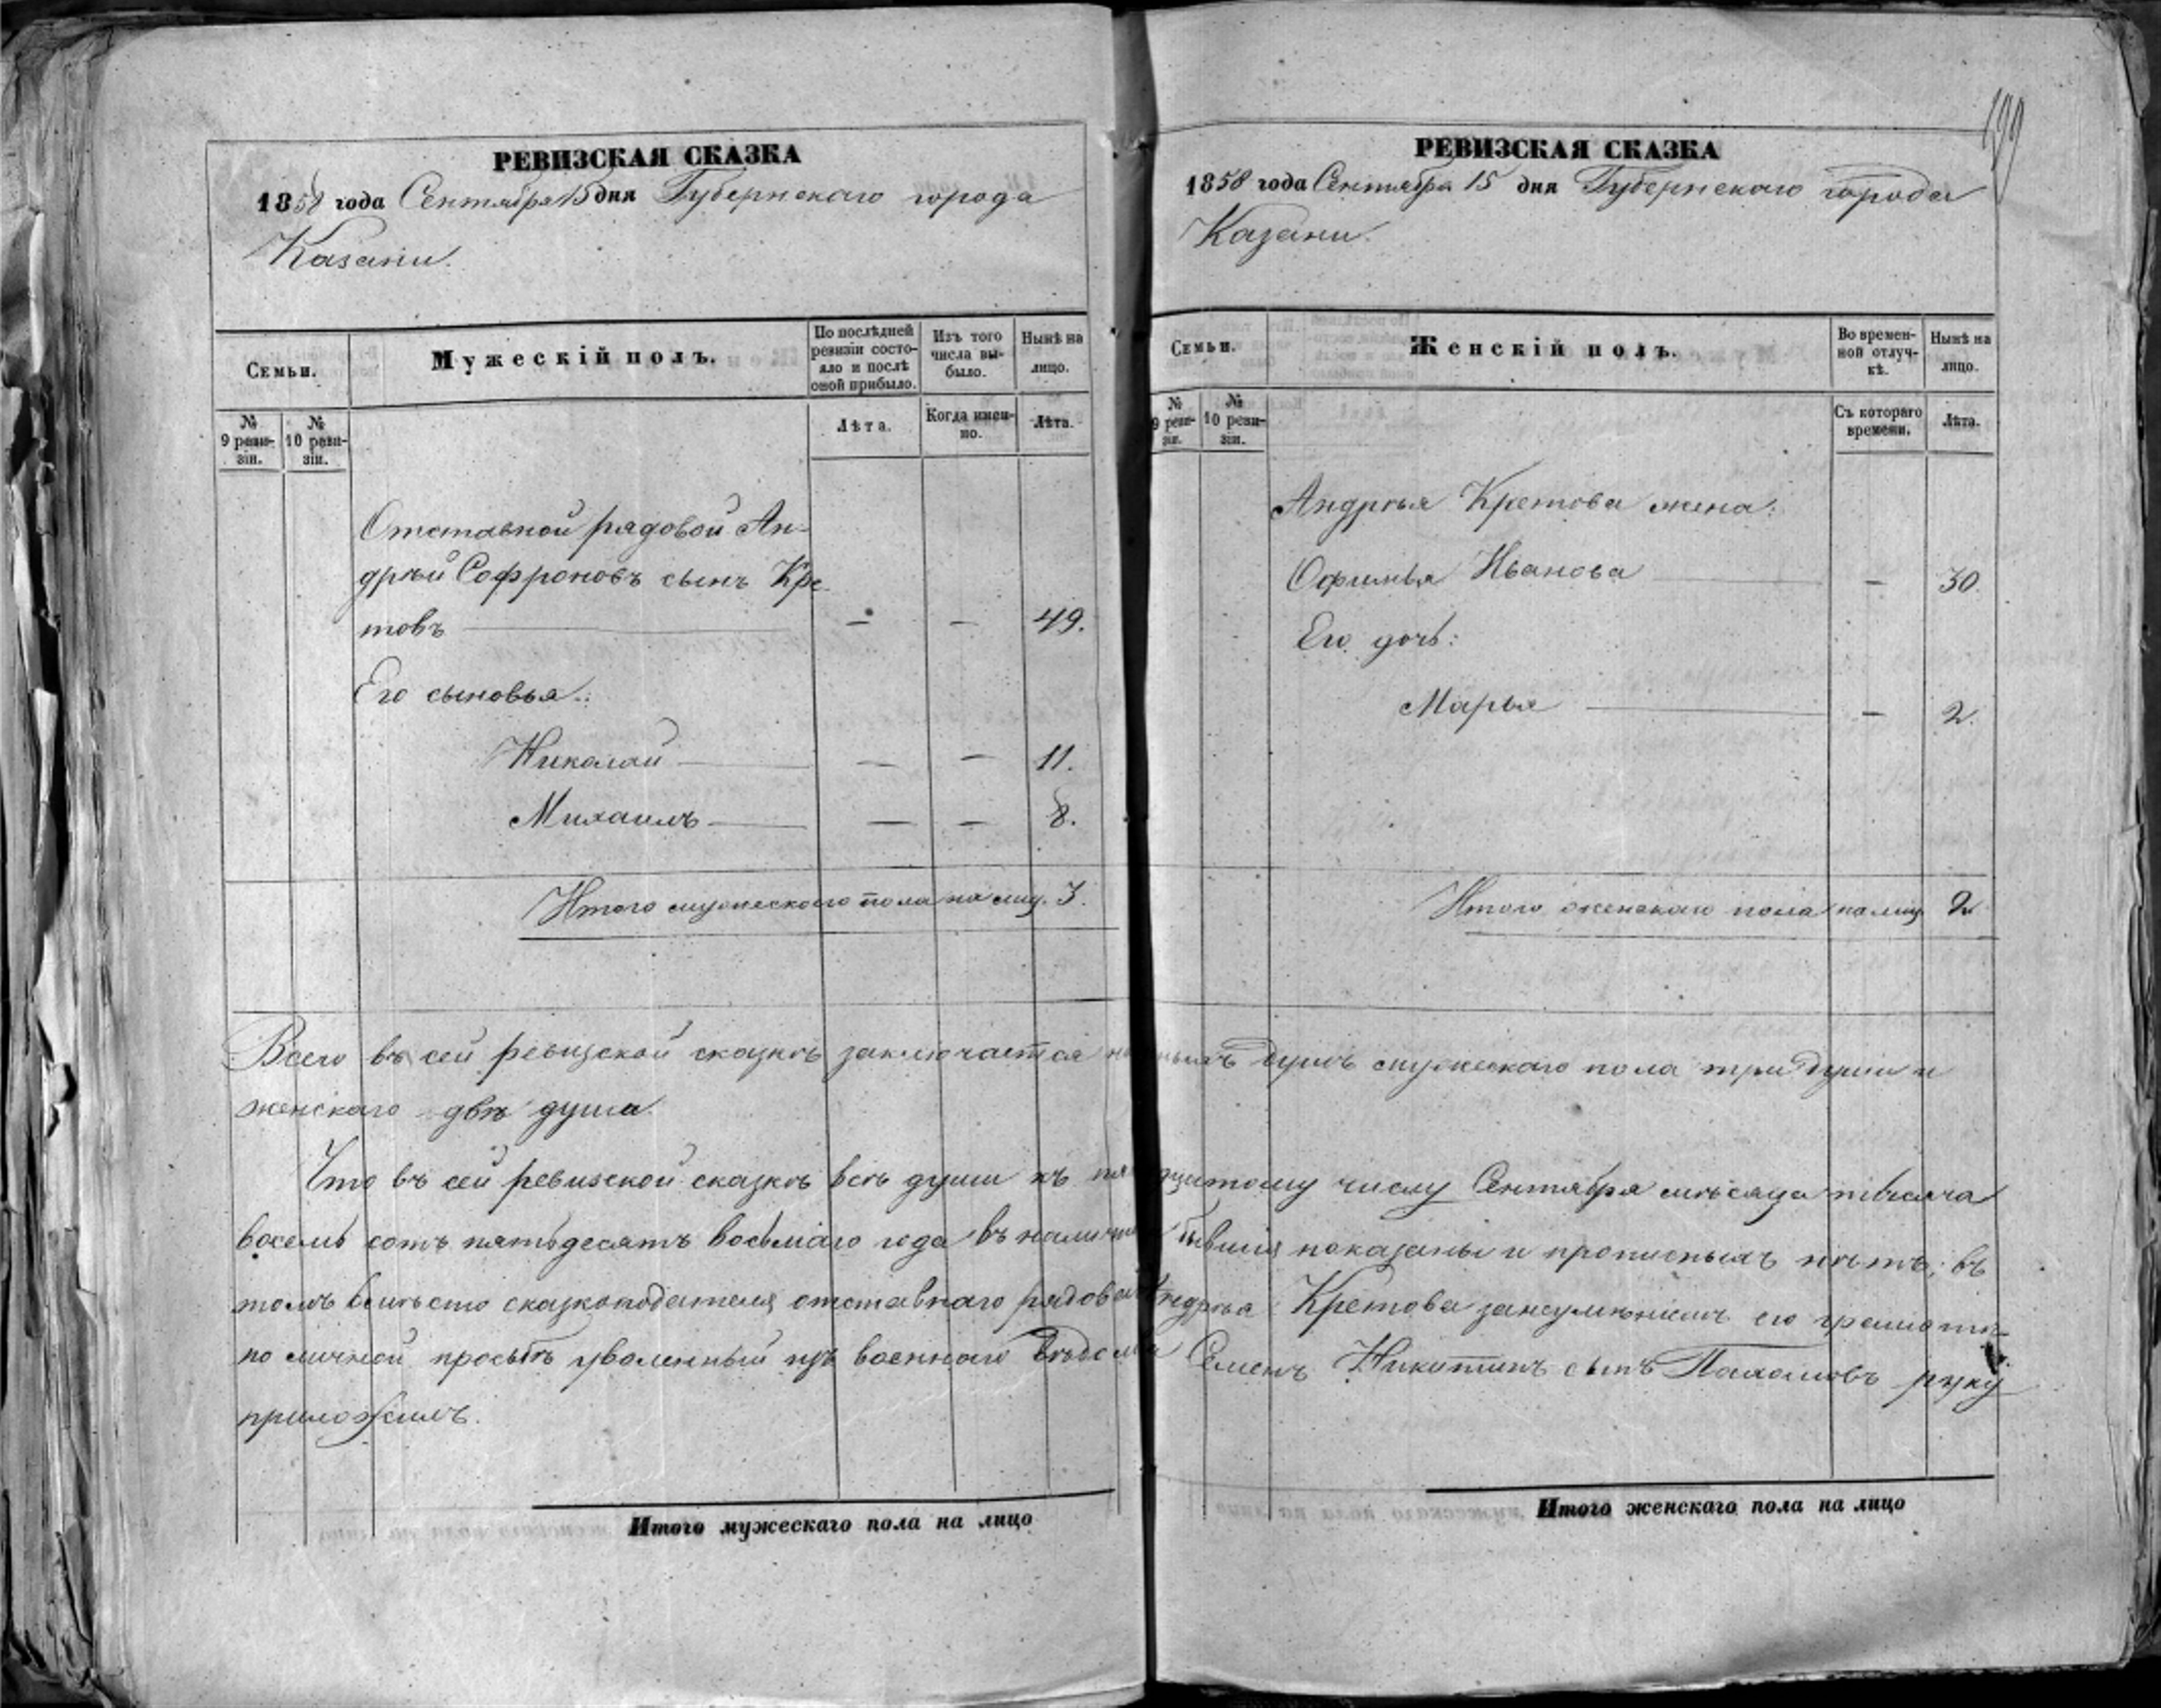 РЕВИЗСКАЯ СКАЗКА
1858 года Сентября 15 дня Губернскаго города
Казани.
Семьи.
Мужескій полъ.
По послѣдней
ревизіи состо-
яло и послѣ
оной прибыло.
Изъ того
числа вы-
было.
Нынѣ на
лицо.
№
9 реви-
зіи.
№
10 реви-
зіи.
Лѣта.
Когда имен-
но.
Лѣта.
Отставной рядовой Ан-
дрѣй Софроновъ сынъ Кре-
товъ — — — 49.
Его сыновья:
Николай — — — 11.
Михаилъ — — — 8.
Итого мужескаго пола на лиц. 3.
199
РЕВИЗСКАЯ СКАЗКА
1858 года Сентября 15 дня Губернскаго города
Казани.
Семьи.
Женскій полъ.
Во времен-
ной отлуч-
кѣ.
Нынѣ на
лицо.
№
9 реви-
зіи.
№
10 реви-
зіи.
Съ котораго
времени.
Лѣта.
Андрѣя Кретова жена:
Офимья Иванова — — 30.
Его дочь:
Марья — — 2.
Итого женскаго пола на лиц 2
Всего въ сей ревизской сказкѣ заключается душъ мужескаго пола три души и
женскаго двѣ душа.
Что въ сей ревизской сказкѣ всѣ души къ числу Сентября мѣсяца тысяча
восемь сотъ пятьдесятъ восьмаго года въ бывшія показаны и прописныхъ нѣтъ; въ
томъ вмѣсто сказкоподателя отставнаго Андрѣя Кретова за неумѣніемъ его грамотѣ
по личной просьбѣ уволенный изъ военнаго вѣдомства Семенъ Никитинъ сынъ Пахомовъ руку
приложилъ.
Итого мужескаго пола на лицо
Итого женскаго пола на лицо